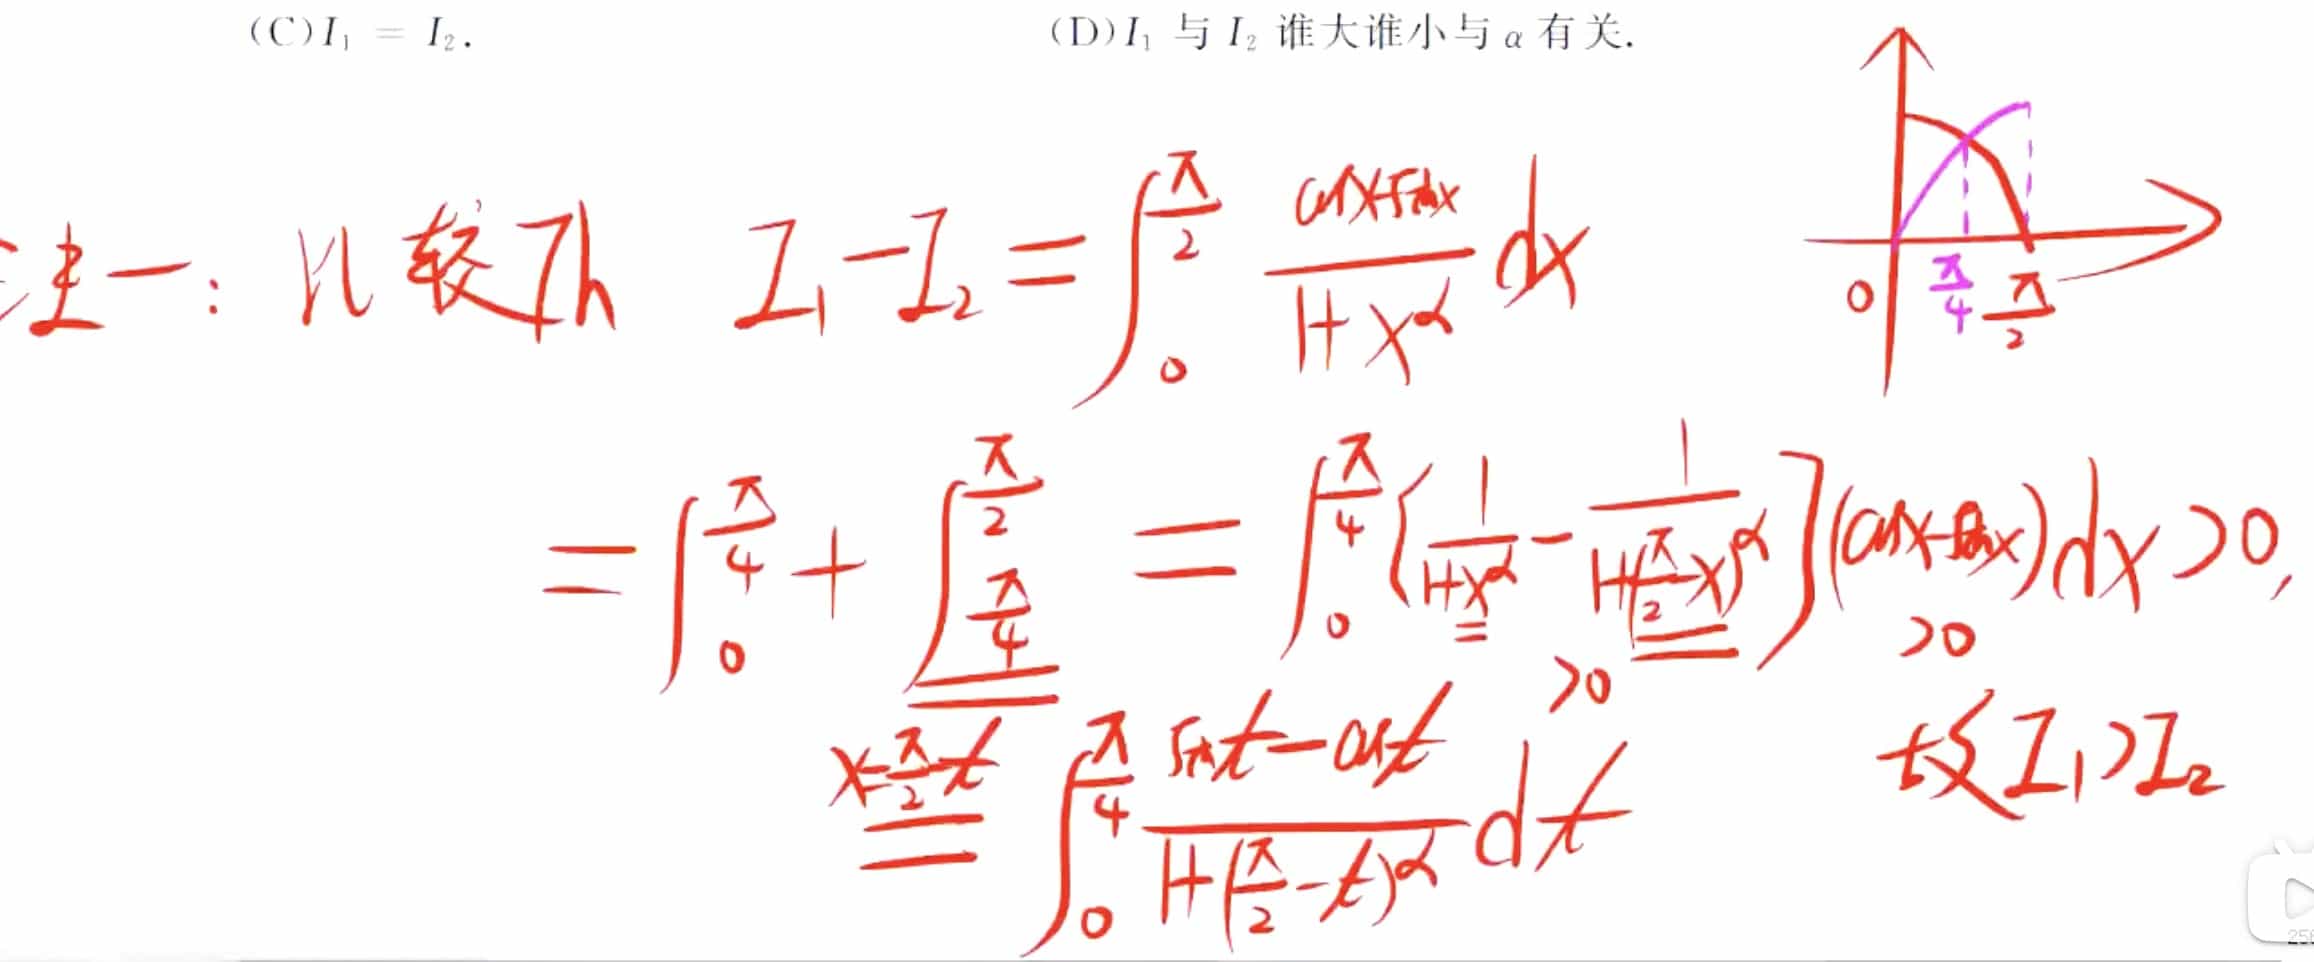 (C) I₁ = I₂. (D) I₁ 与 I₂ 谁大谁小与 α 有关.
法一: 比较 I₁ - I₂ = ∫₀^{π/2} (cosx-sinx)/(1+x^α) dx
= ∫₀^{π/4} + ∫_{π/4}^{π/2} = ∫₀^{π/4} [1/(1+x^α) - 1/(1+(π/2-x)^α)] (cosx-sinx) dx >0,
>0 >0
x=π/2-t = ∫₀^{π/4} (sint-cost)/(1+(π/2-t)^α) dt 故 I₁>I₂
0 π/4 π/2